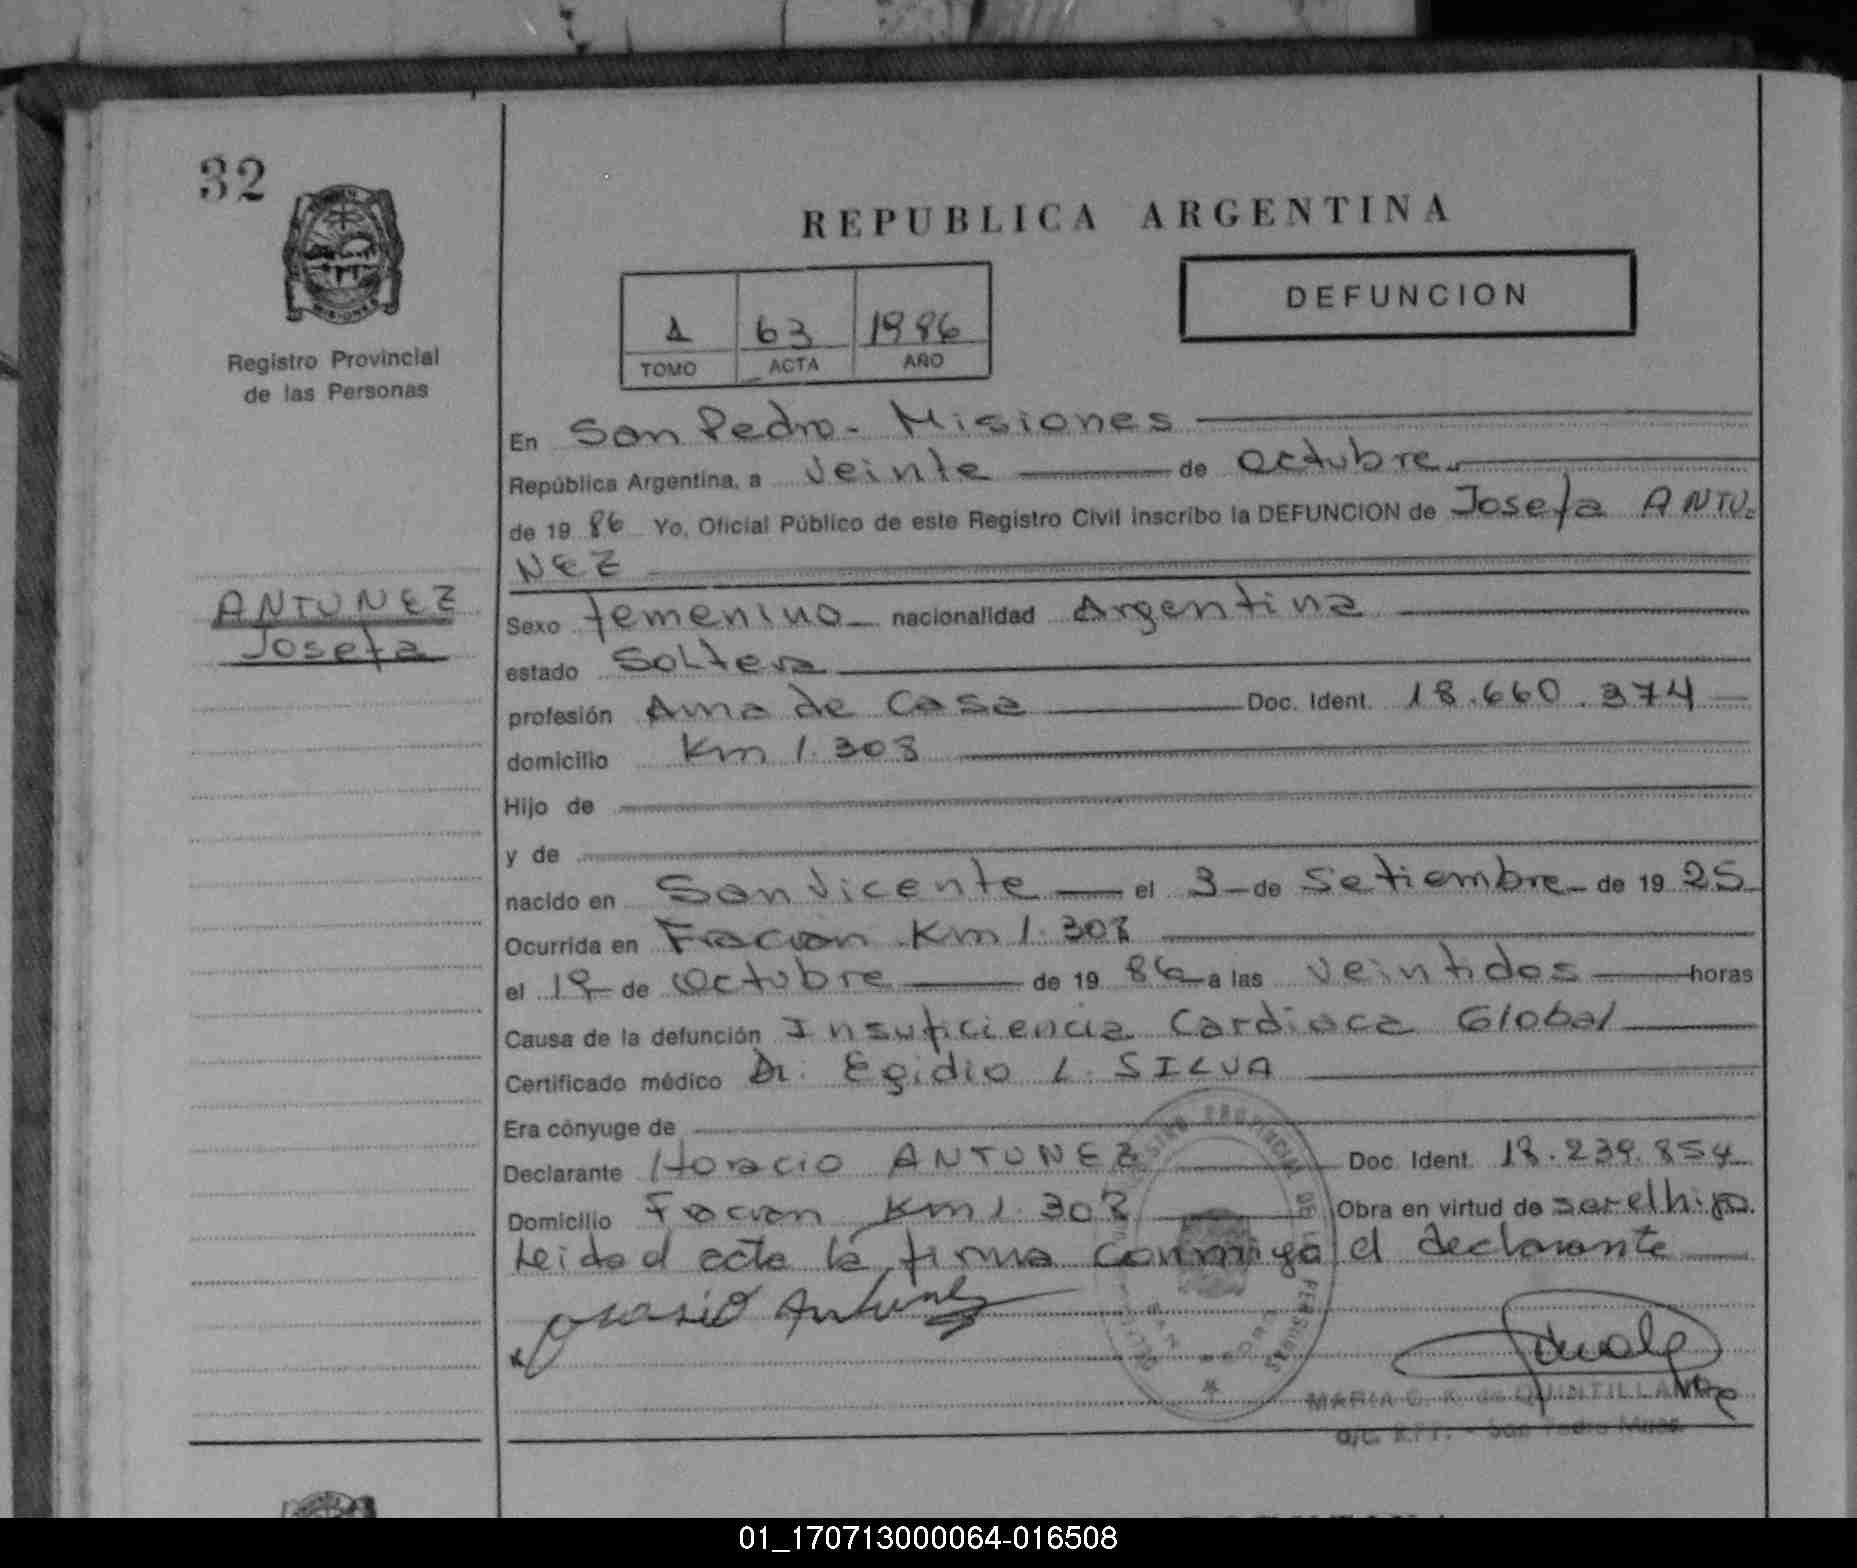 32
REPUBLICA ARGENTINA
DEFUNCION
1 63 1986
TOMO ACTA AÑO
Registro Provincial
de las Personas
En San Pedro - Misiones
República Argentina, a veinte de Octubre
de 19 86 Yo, Oficial Público de este Registro Civil inscribo la DEFUNCION de Josefa ANTU-
NEZ
ANTUNEZ
Josefa
Sexo femenino nacionalidad Argentina
estado Soltera
profesión Ama de Casa Doc. Ident. 18.660.374
domicilio Km 1.308
Hijo de
y de
nacido en San Vicente el 3 de Setiembre de 19 25
Ocurrida en Fracran Km 1.308
el 19 de Octubre de 19 86 a las veintidos horas
Causa de la defunción Insuficiencia Cardiaca Global
Certificado médico Dr. Egidio L. SILVA
Era cónyuge de
Declarante Horacio ANTUNEZ Doc. Ident. 18.239.854
Domicilio Fracran Km 1.308 Obra en virtud de ser el hijo.
Leida el acta la firma conmigo el declarante
Antunez
MARIA G. K. de QUINTILLAN
San Pedro
01_170713000064-016508